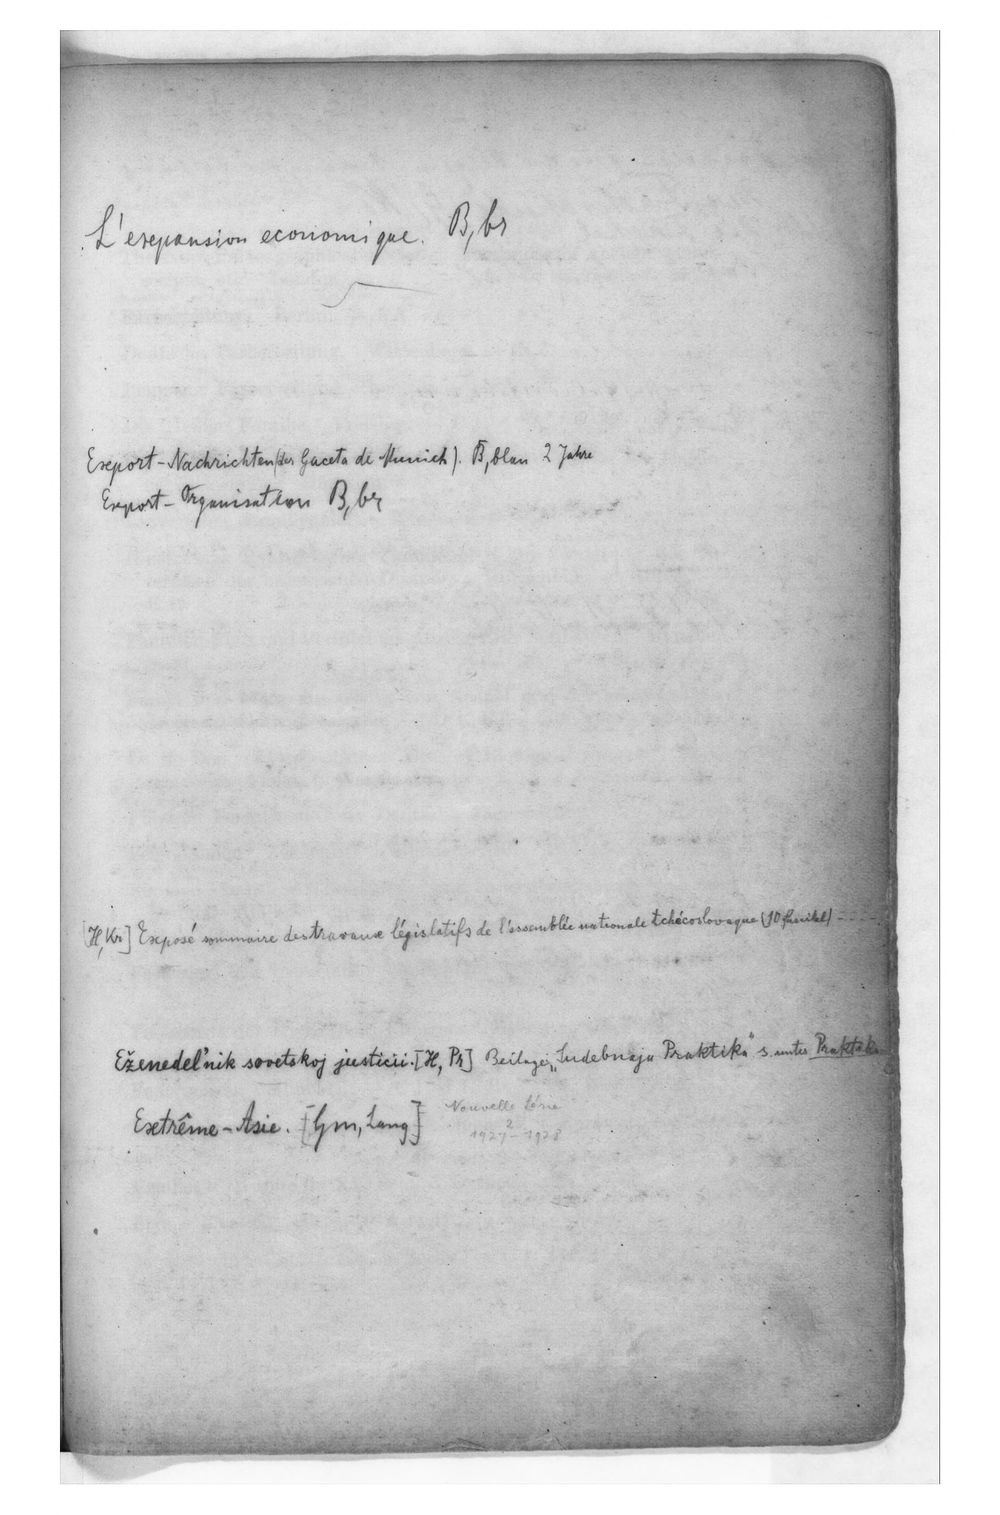 L'expansion economique. B, br
Export-Nachrichten (der Gaceta de Munich). B, blau 2 Jahre
Export-Organisation B, br
[H, Kr] Exposé sommaire des travaux législatifs de l'assemblée nationale tchécoslovaque (10
Eženedel'nik sovetskoj justicii. [H, Pr] Beilage: „Sudebnaja Praktika" s. unter Praktika
Extrême-Asie. [Gm, Lang] Nouvelle Série
1927 - 1928